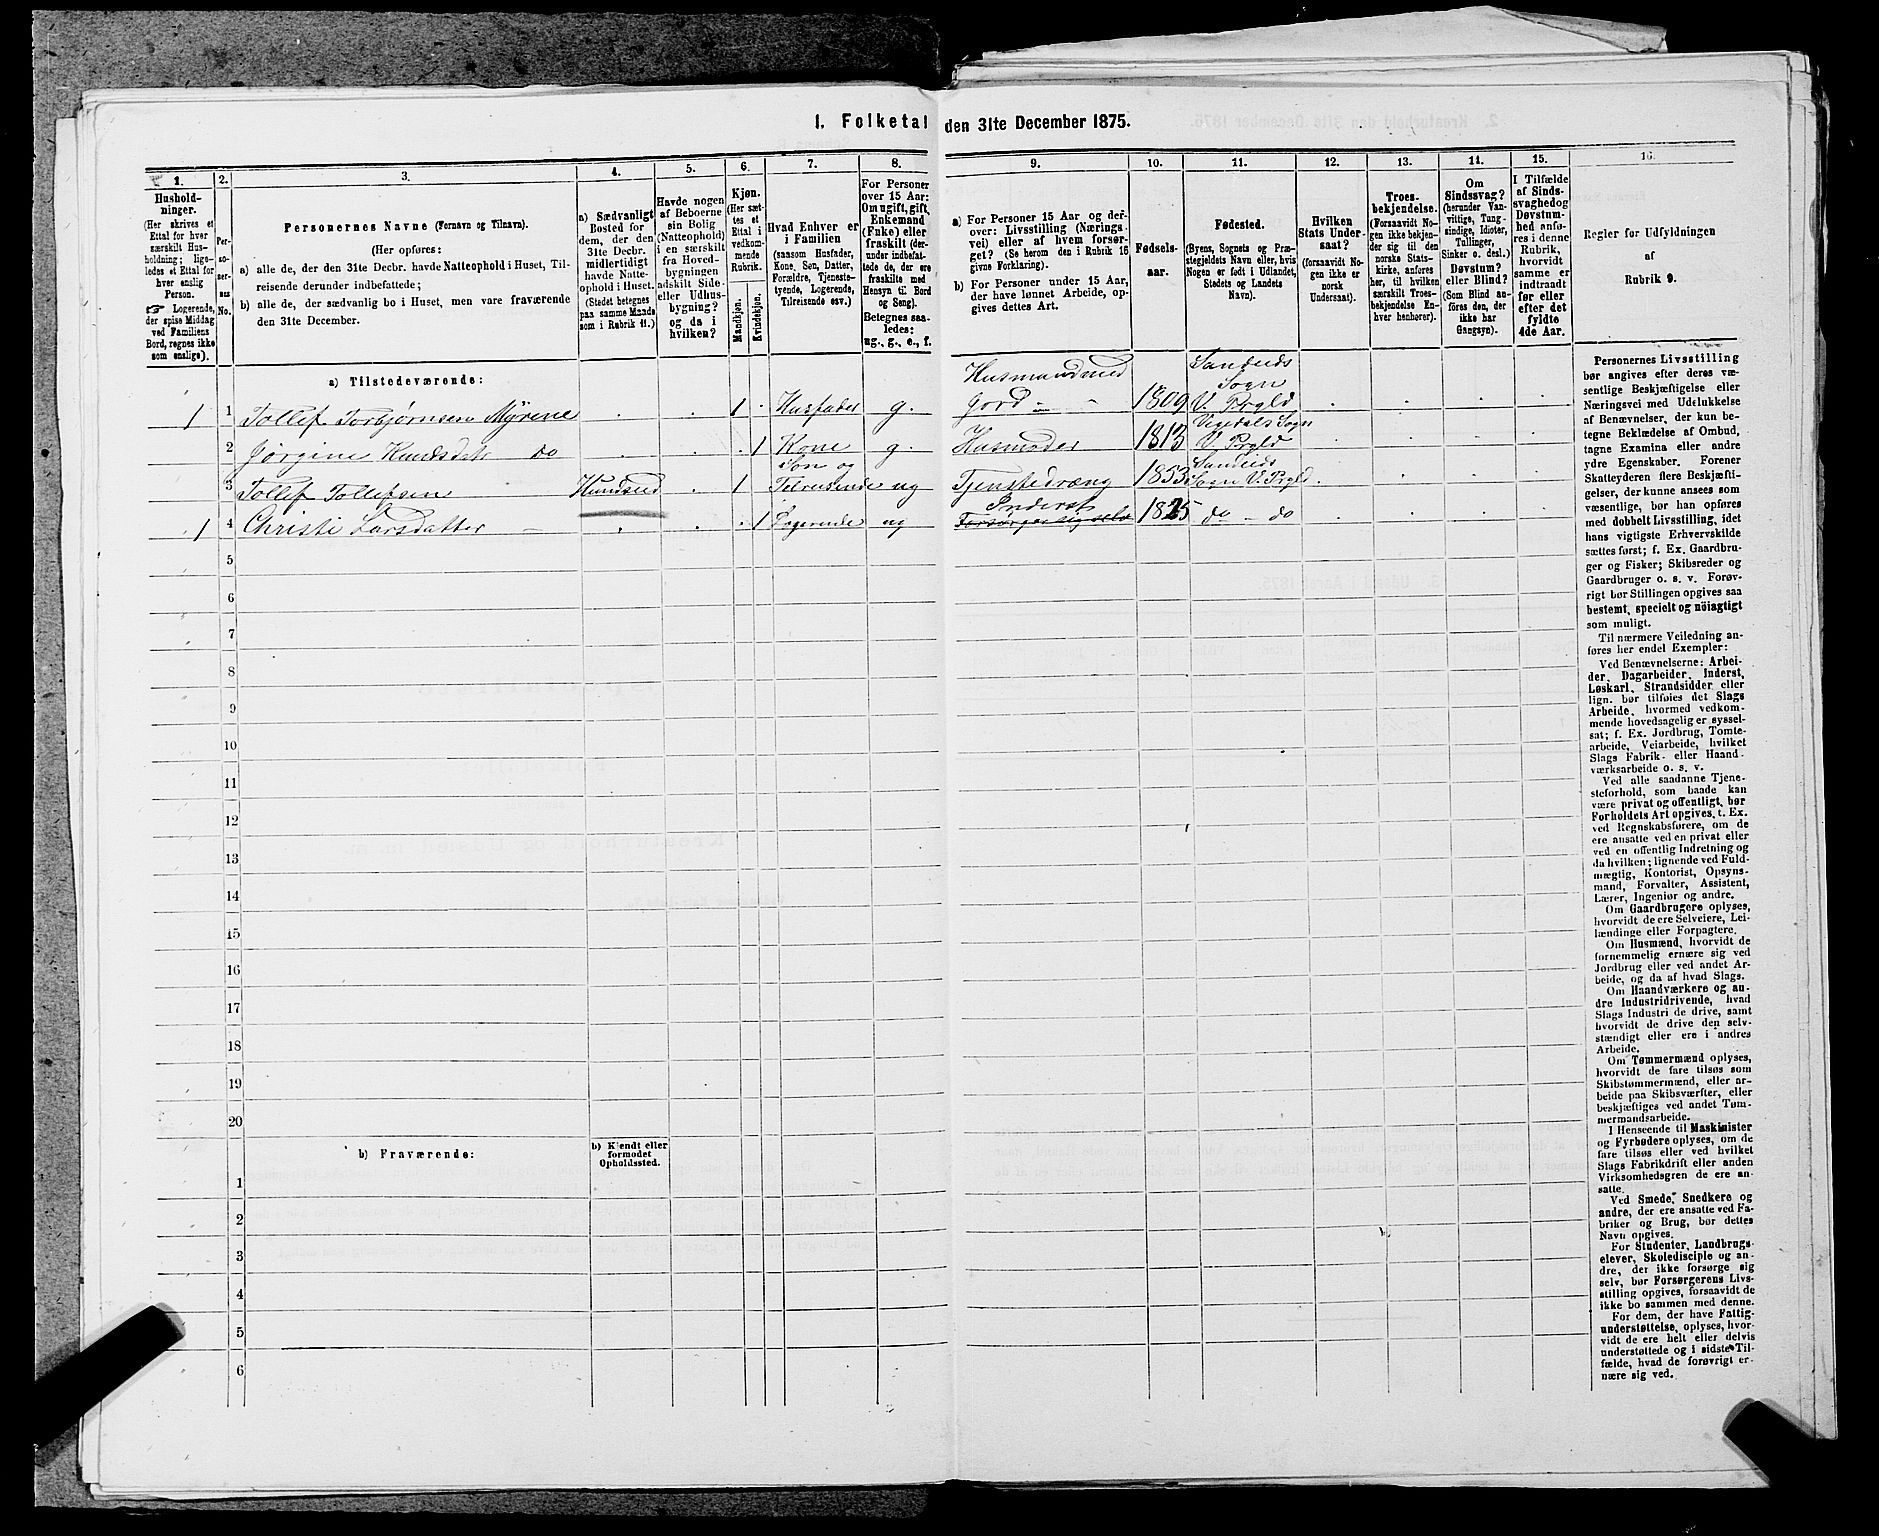 1. Folketal den 31te December 1875.
1.
Hushold-
ninger.
(Her skrives et
Ettal for hver
særskilt Hus-
holdning; lige-
ledes et Ettal for
hver enslig
Person.
☞ Logerende,
der spise Middag
ved Familiens
Bord, regnes ikke
som enslige).
2.
Per-
so-
ner-
nes
No.
3.
Personernes Navne (Fornavn og Tilnavn).
(Her opføres:
a) alle de, der den 31te Decbr. havde Natteophold i Huset, Til-
reisende derunder indbefattede;
b) alle de, der sædvanlig bo i Huset, men vare fraværende
den 31te December.
4.
a) Sædvanligt
Bosted for
dem, der den
31te Decbr.
midlertidigt
havde Natte-
ophold i Huset.
(Stedet betegnes
paa samme Maade
som i Rubrik 11.)
5.
Havde nogen
af Beboerne
sin Bolig
(Natteophold)
i en særskilt
fra Hoved-
bygningen
adskilt Side-
eller Udhus-
bygning?
og da i
hvilken?
6.
Kjøn.
(Her sæt-
tes et
Ettal i
vedkom-
mende
Rubrik.
Mandkjøn.
Kvindekjøn.
7.
Hvad Enhver er
i Familien
(saasom Husfader,
Kone, Søn, Datter,
Forældre, Tjenestе-
tyende, Logerende,
Tilreisende osv.)
8.
For Personer
over 15 Aar:
Om ugift, gift,
Enkemand
(Enke) eller
fraskilt (der-
under indbefat-
tede de, der ere
fraskilte med
Hensyn til Bord
og Seng).
Betegnes saa-
ledes:
ug., g., e., f.
9.
a) For Personer 15 Aar og der-
over: Livsstilling (Nærings-
vei) eller af hvem forsør-
get? (Se herom den i Rubrik 16
givne Forklaring).
b) For Personer under 15 Aar,
der have lønnet Arbeide, op-
gives dettes Art.
10.
Fødsels-
aar.
11.
Fødested.
(Byens, Sognets og Præ-
stegjeldets Navn eller, hvis
Nogen er født i Udlandet,
Stedets og Landets
Navn).
12.
Hvilken
Stats Under-
saat?
(forsaavidt No-
gen ikke er
norsk
Undersaat).
13.
Troes-
bekjendelse.
(Forsaavidt No-
gen ikke bekjen-
der sig til den
norske Stats-
kirke, anføres
her, til hvilken
særskilt Troes-
bekjendelse En-
hver henhører).
14.
Om
Sindssvag?
(herunder Van-
vittige, Tung-
sindige, Idioter,
Tullinger,
Sinker o. desl.)
Døvstum?
eller Blind?
(Som Blind an-
føres den, der
ikke har
Gangsyn).
15.
I Tilfælde
af Sinds-
svaghed og
Døvstum-
hed anfø-
res i denne
Rubrik,
hvorvidt
samme er
indtraadt
før eller
efter det
fyldte
4de Aar.
16.
Regler for Udfyldningen
af
Rubrik 9.
a) Tilstedeværende:
1 1 Tollef Torbjørnsen Myrene 1 Husfader g. Husmand med Jord 1809 Sandeids Sogn V. Prgld
2 Jørgine Knudsdatr do 1 Kone g. Husmoder 1813 V. Prgld
3 Tollef Tollefsen 1 Søn og ug Tjenstedræng 1853 Sandeids Sogn V. Prgld.
1 4 Christi Larsdatter 1 Logerende ug Inderst Forsørger sig selv 1825 do - do
5
6
7
8
9
10
11
12
13
14
15
16
17
18
19
20
b) Fraværende:
b) Kjendt eller
formodet
Opholdssted.
1
2
3
4
5
6
Personernes Livsstilling
bør angives efter deres væ-
sentlige Beskjæftigelse eller
Næringsvei med Udelukkelse
af Benævnelser, der kun be-
tegne Beklædelse af Ombud,
tagne Examina eller andre
ydre Egenskaber. Forener
Skatteyderen flere Beskjæfti-
gelser, der kunne ansees som
væsentlige, bør han opføres
med dobbelt Livsstilling, idet
hans vigtigste Erhvervskilde
sættes først; f. Ex. Gaardbru-
ger og Fisker; Skibsreder og
Gaardbruger o. s. v. Forøv-
rigt bør Stillingen opgives saa
bestemt, specielt og nöiagtigt
som muligt.
Til nærmere Veiledning an-
føres her endel Exempler:
Ved Benævnelserne: Arbei-
der, Dagarbeider, Inderst,
Løskarl, Strandsidder eller
lign. bør tilføies det Slags
Arbeide, hvormed vedkom-
mende hovedsagelig er syssel-
sat; f. Ex. Jordbrug, Tomte-
arbeide, Veiarbeide, hvilket
Slags Fabrik- eller Haand-
værksarbeide o. s. v.
Ved alle saadanne Tjene-
steforhold, som baade kan
være privat og offentligt, bør
Forholdets Art opgives, t. Ex.
ved Regnskabsførere, om de
ere ansatte ved en privat eller
ved en offentlig Indretning og
da hvilken; lignende ved Fuld-
mægtig, Kontorist, Opsyns-
mand, Forvalter, Assistent,
Lærer, Ingeniør og andre.
Om Gaardbrugere oplyses,
hvorvidt de ere Selveiere, Lei-
lændinge eller Forpagtere.
Om Husmænd, hvorvidt de
fornemmelig ernære sig ved
Jordbrug eller ved andet Ar-
beide, og da af hvad Slags.
Om Haandværkere og an-
dre Industridrivende, hvad
Slags Industri de drive, samt
hvorvidt de drive den selv-
stændigt eller ere i andres
Arbeide.
Om Tømmermænd oplyses,
hvorvidt de fare tilsøs som
Skibstømmermænd, eller ar-
beide paa Skibsværfter, eller
beskjæftiges ved andet Tøm-
mermandsarbeide.
I Henseende til Maskinister
og Fyrbødere oplyses, om de
fare tilsøs eller ved hvilket
Slags Fabrikdrift eller anden
Virksomhedsgren de ere an-
satte.
Ved Smede, Snedkere og
andre, der ere ansatte ved Fa-
briker og Brug, bør dettes
Navn opgives.
For Studenter, Landbrugs-
elever, Skoledisciple og an-
dre, der ikke forsørge sig
selv, bør Forsørgerens Livs-
stilling opgives, forsaavidt de
ikke bo sammen med denne.
For dem, der have Fattig-
understøttelse, oplyses, hvor-
vidt de ere helt eller delvis
understøttede og i sidste Til-
fælde, hvad de forøvrigt er-
nære sig ved.